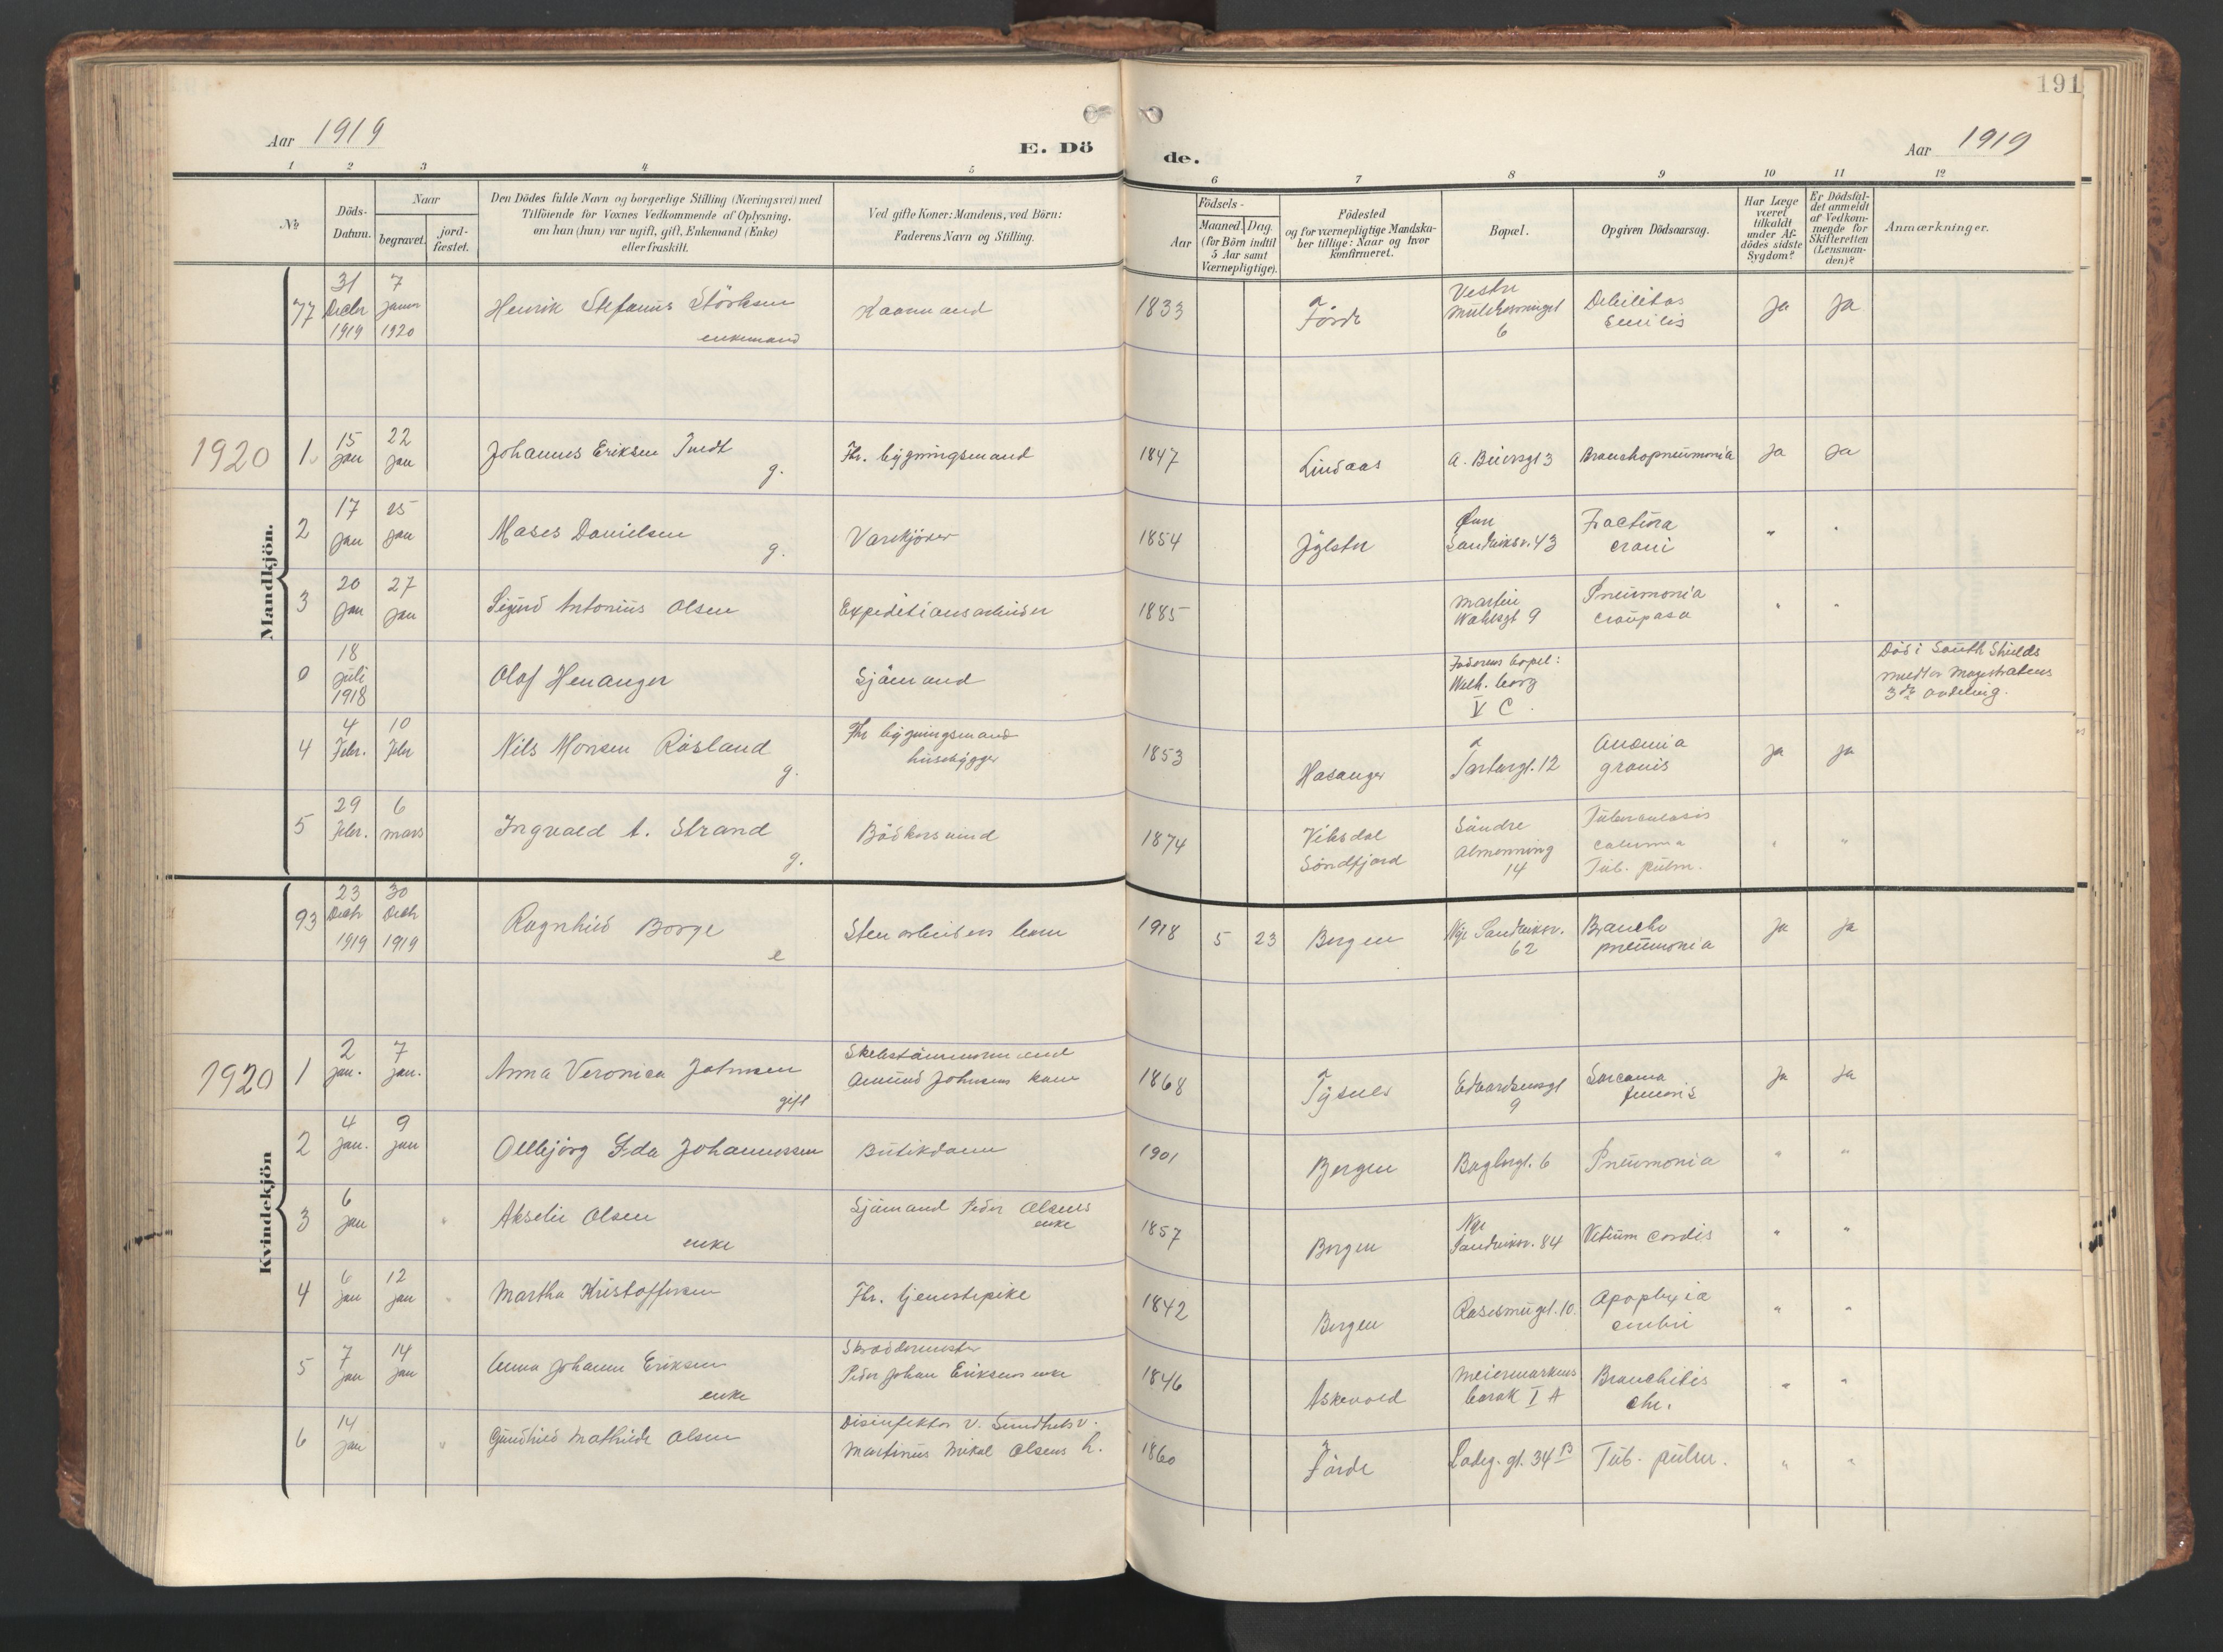 191
Aar 1919
E. Dö
de.
Aar 1919
1 2 3 4 5
6 7 8 9 10 11 12
№
Döds-
Datum.
Naar
begravet.
jord-
fæstet.
Den Dödes fulde Navn og borgerlige Stilling (Næringsvei) med
Tilföiende for Voxnes Vedkommende af Oplysning,
om han (hun) var ugift, gift, Enkemand (Enke)
eller fraskilt.
Ved gifte Koner: Mandens, ved Börn:
Faderens Navn og Stilling.
Födsels-
Aar
Maaned.
Dag.
(for Börn indtil
5 Aar samt
Værnepligtige).
Födested
og for værnepligtige Mandska-
ber tillige: Naar og hvor
konfirmeret.
Bopæl.
Opgiven Dödsaarsag.
Har Læge
været
tilkaldt
under Af-
dödes sidste
Sygdom?
Er Dödsfal-
det anmeldt
af Vedkom-
mende for
Skifteretten
(Lensman-
den)?
Anmærkninger.
Mandkjön.
77
31
Decbr
1919
7
Januar
1920
Henrik Stefanus Störksen
enkemand
Kaarmand
1833
Förde
Vestre
Muldermugt
6
Debilitas
senilis
Ja
Ja
1920
1
15
Jan
22
Jan
Johannes Eriksen Tvedt
g.
Fhr. bygningsmand
1847
Lindaas
A. Beiersgt 3
Bronchopneumonia
Ja
Ja
2
17
Jan
25
Jan
Moses Danielsen
g.
Varekjörer
1854
Jölster
Övre
Sandviksv. 43
Fractura
cranii
"
"
3
20
Jan
27
Jan
Sigurd Antonius Olsen
Expeditionsarbeider
1885
Martin
Wahlsgt 9
Pneumonia
crouposa
"
"
0
18
Juli
1918
Olaf Henanger
Sjömand
Faderens bopel:
Welh. borg
V C.
Död i South Shields
meldt av Magistratens
3die avdeling.
4
4
Febr.
10
Febr
Nils Monsen Rösland
g.
Fhr bygningsmand
husebygger
1853
Hosanger
Tartargt. 12
Anæmia
gravis
Ja
Ja
5
29
Febr.
6
mars
Ingvald A. Strand
g.
Bödkersvend
1874
Viksdal
Söndfjord
Söndre
Almenning
14
Tuberculosis
columna
Tub. pulm.
"
"
Kvindekjön
93
23
Decbr
1919
30
Decbr
1919
Ragnhild Borge
e
Stenarbeiders barn
1918
5
23
Bergen
Nye Sandviksv.
62
Broncho
pneumonia
Ja
Ja
1920
1
2
Jan.
7
Jan.
Anna Veronica Johnsen
gift
Skibstömmermand
Amund Johnsens kone
1868
Tysnes
Edvardsensgt
9
Sarcoma
femoris
Ja
Ja
2
4
Jan.
9
Jan
Ollbjörg Ida Johannessen
Butikdame
1901
Bergen
Baglergt. 6
Pneumonia
"
"
3
6
Jan
"
Akselie Olsen
enke
Sjömand Peder Olsens
enke
1857
Bergen
Nye
Sandviksv. 84
Vitium cordis
"
"
4
6
Jan
12
Jan
"
Martha Kristoffersen
Fhr. tjenestepike
1842
Bergen
Rosesmugt. 10.
Apoplexia
cerebri
"
"
5
7
Jan
14
Jan
Anna Johanne Eriksen
enke
Skræddermester
Peder Johan Eriksens enke
1846
Askevold
Meiermarkens
barak I A
Bronchitis
chr.
"
"
6
14
Jan
"
Gundhild Mathilde Olsen
Disinfektor v. Sundhedsv.
Martinus Mikal Olsens h.
1860
Förde
Ladeg. gt. 34 B
Tub. pulm.
"
"